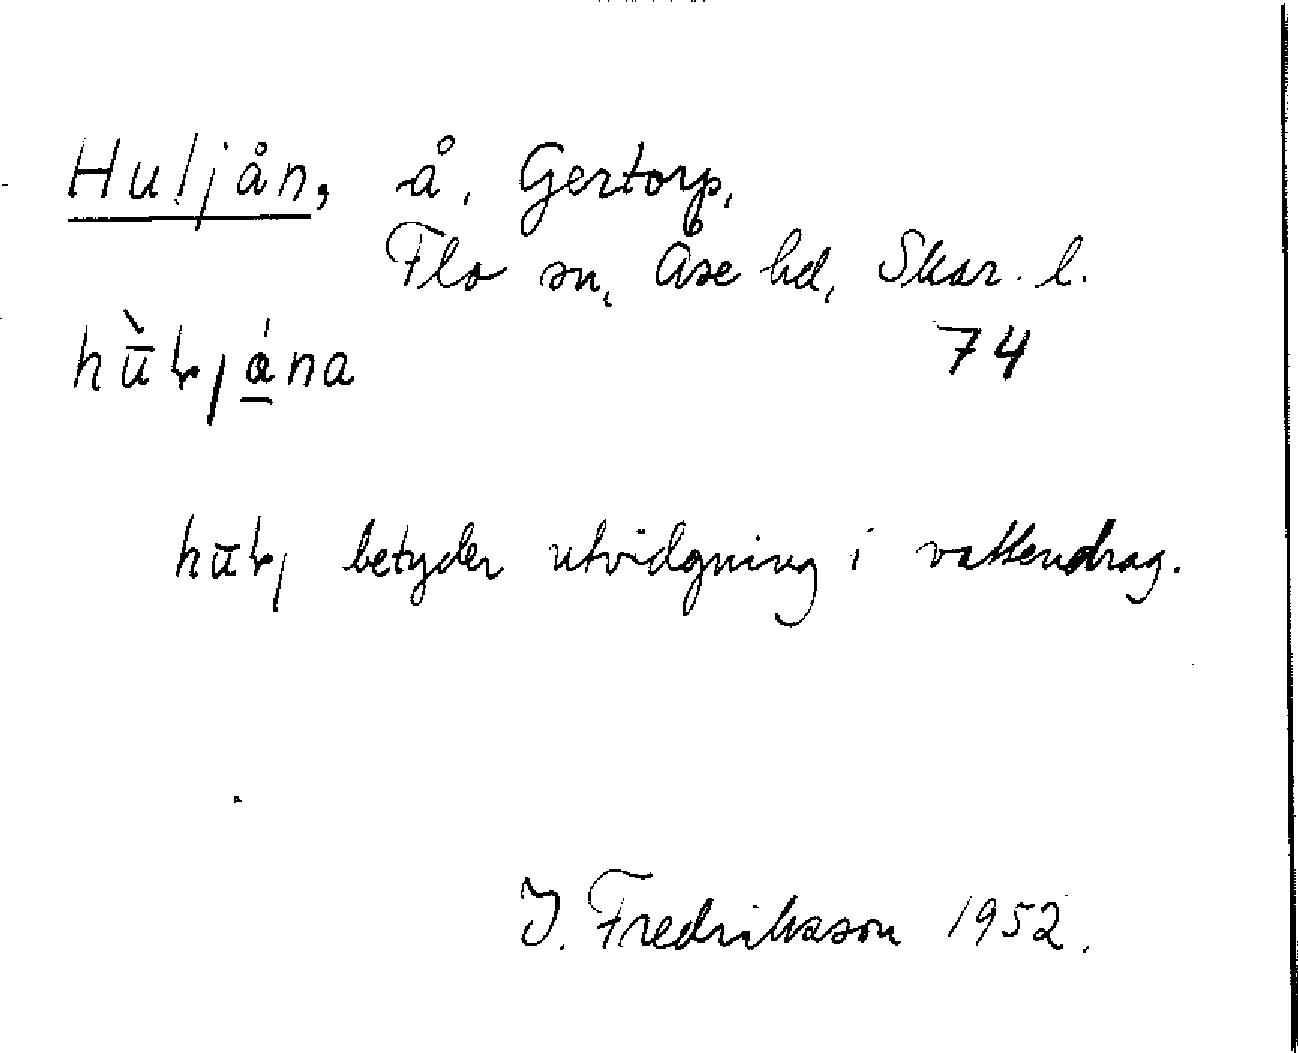 Huljån, å, Gertorp,
Flo sn, Åse hd, Skar. l.
hù̄ƚȷá̱na 74
hūƚȷ betyder utvidgning i vattendrag.
J. Fredriksson 1952.